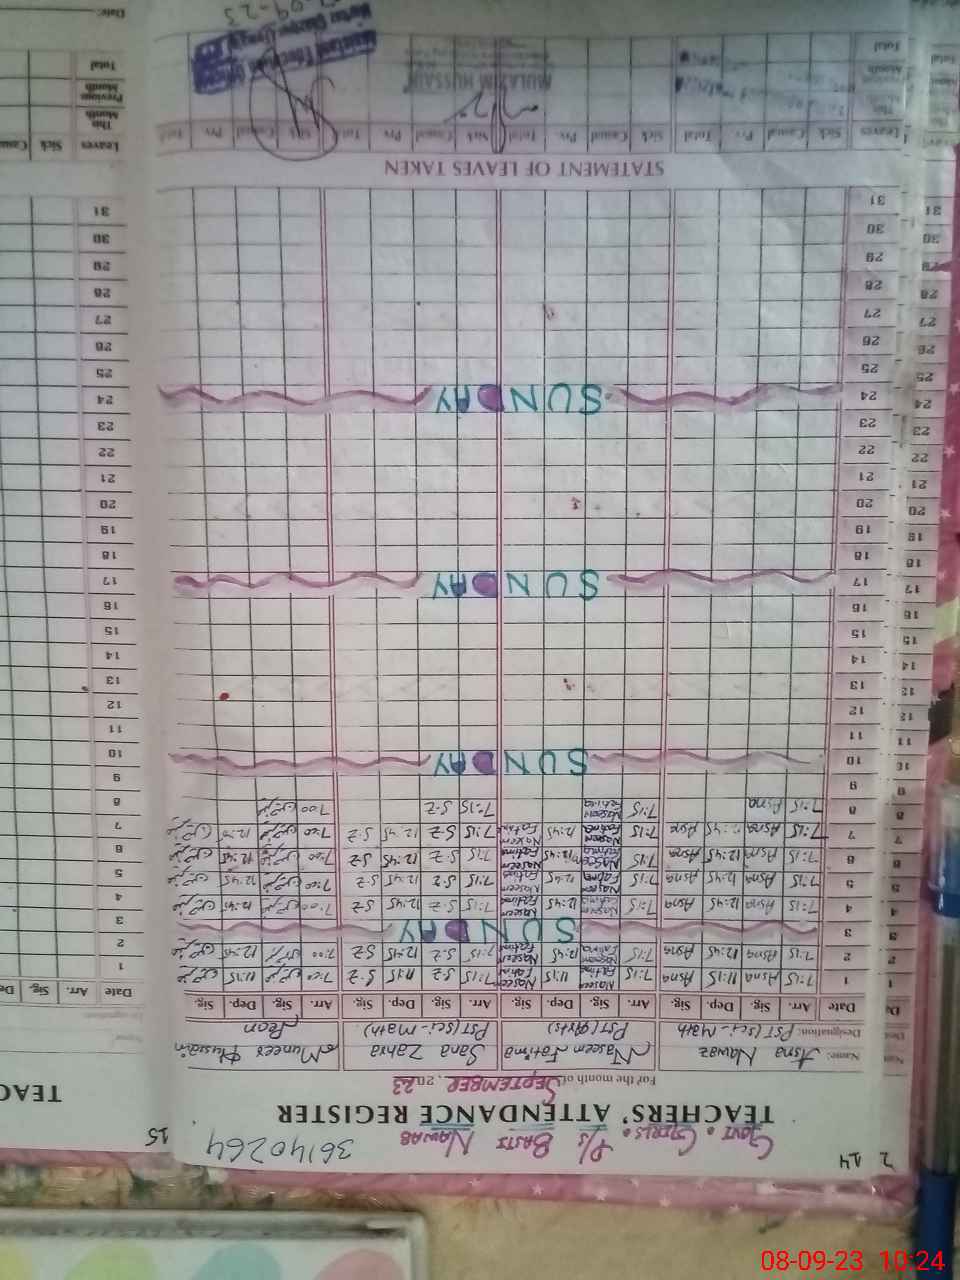 2 14
GOVT. GIRLS. P/S BASTI NAWAB 36140264
TEACHERS' ATTENDANCE REGISTER
For the month of SEPTEMBER, 2023
Name: Asna Nawaz Naseem Fatima Sana Zahra Muneer Hussain
Designation: PST(Sci-Math) PST(Arts) PST(Sci-Math) Peon
Date Arr. Sig. Dep. Sig. Arr. Sig. Dep. Sig. Arr. Sig. Dep. Sig. Arr. Sig. Dep. Sig.
1 7:15 Asna 11:15 Asna 7:15 Naseem Fatima 11:15 Naseem Fatima 7:15 S.Z 11:15 S.Z 7:00 11:15
2 7:15 Asna 12:45 Asna 7:15 Naseem Fatima 12:45 Naseem Fatima 7:15 S.Z 12:45 S.Z 7:00 12:45
3 SUNDAY
4 7:15 Asna 12:45 Asna 7:15 Naseem Fatima 12:45 Naseem Fatima 7:15 S.Z 12:45 S.Z 7:00 12:45
5 7:15 Asna 12:45 Asna 7:15 Naseem Fatima 12:45 Naseem Fatima 7:15 S.Z 12:45 S.Z 7:00 12:45
6 7:15 Asna 12:45 Asna 7:15 Naseem Fatima 12:45 Naseem Fatima 7:15 S.Z 12:45 S.Z 7:00 12:45
7 7:15 Asna 12:45 Asna 7:15 Naseem Fatima 12:45 Naseem Fatima 7:15 S.Z 12:45 S.Z 7:00
8 7:15 Asna 7:15 Naseem Fatima 7:15 S.Z 7:00
9
10 SUNDAY
11
12
13
14
15
16
17 SUNDAY
18
19
20
21
22
23
24 SUNDAY
25
26
27
28
29
30
31
STATEMENT OF LEAVES TAKEN
Leaves Sick Casual Prv. Total Sick Casual Prv. Total Sick Casual Prv. Total Sick Casual Prv. Total
This Month
Total
MULAZIM HUSSAIN
15
TEAC
Date Arr. Sig. De
1
2
3
4
5
6
7
8
9
10
11
12
13
14
15
16
17
18
19
20
21
22
23
24
25
26
27
28
29
30
31
Leaves Sick Casu
This Month
Previous Month
Total
Date:
08-09-23 10:24